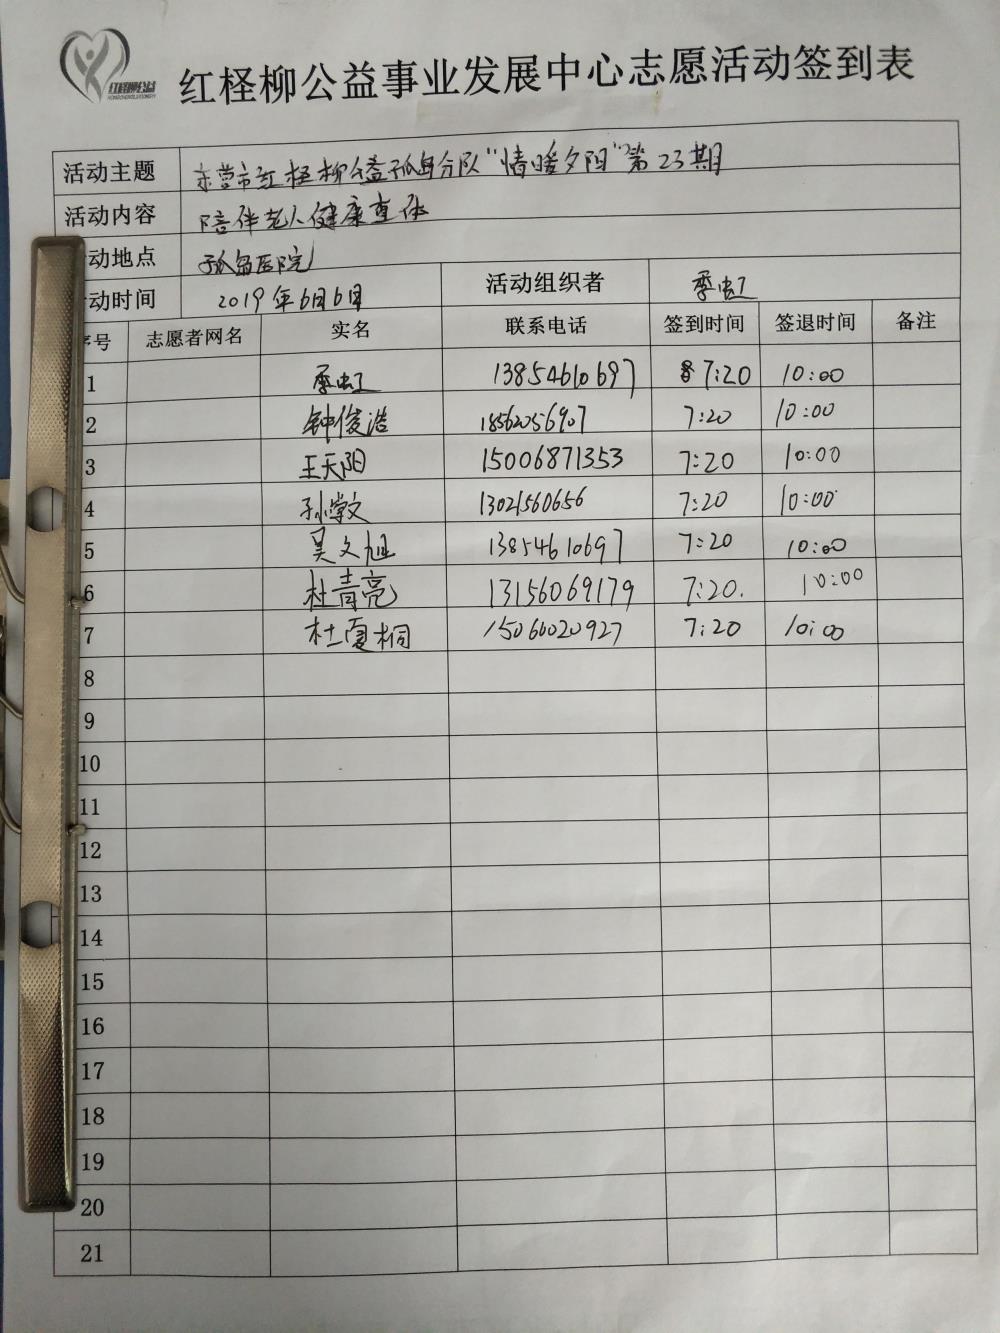 红柽柳公益
红柽柳公益事业发展中心志愿活动签到表
活动主题 东营市红柽柳公益孤岛分队“情暖夕阳”第23期
活动内容 陪伴老人健康查体
动地点 孤岛医院
动时间 2019年6月6日 活动组织者 季虹
序号 志愿者网名 实名 联系电话 签到时间 签退时间 备注
1 季虹 13854610697 7:20 10:00
2 钟俊浩 18562056907 7:20 10:00
3 王天阳 15006871353 7:20 10:00
4 孙 文 13021560656 7:20 10:00
5 吴文旭 13854610697 7:20 10:00
6 杜青亮 13156069179 7:20. 10:00
7 杜夏桐 15066020927 7:20 10:00
8
9
10
11
12
13
14
15
16
17
18
19
20
21